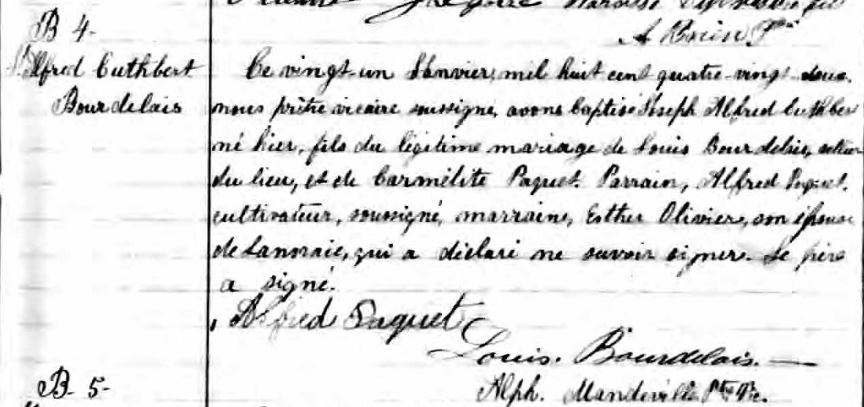 B 4.
A Morin Ptre
J. Alfred Cuthbert
Bourdelais
Ce vingt-un Janvier, mil huit cent quatre-vingt-deux,
nous prêtre vicaire soussigné, avons baptisé Joseph Alfred Cuthbert
né hier, fils du légitime mariage de Louis Bourdelais,
du lieu, et de Carmélite Paquet. Parrain, Alfred Paquet,
cultivateur, soussigné, marraine, Esther Olivier, son épouse
de Lanoraie, qui a déclaré ne savoir signer. Le père
a signé.
Alfred Paquet
Louis. Bourdelais.
Alph. Mandeville Ptre Vic.
B. 5-